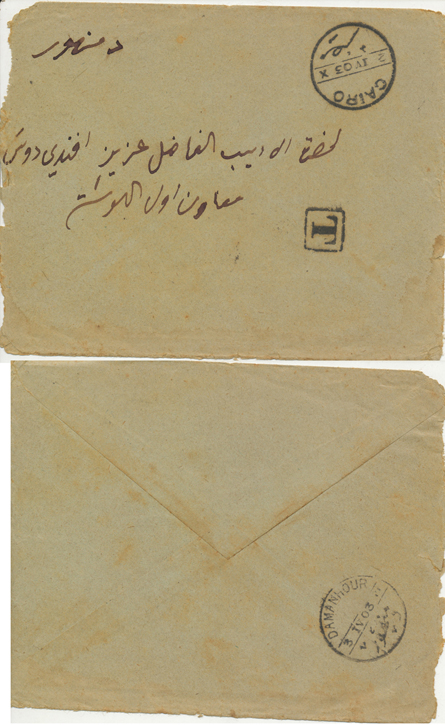 دمنهور
CAIRO
2 IV 03 X
لحضرة الاديب الفاضل عزيز افندي
معاون اول البوستة
T
DAMANHOUR
3 IV 03
دمنهور